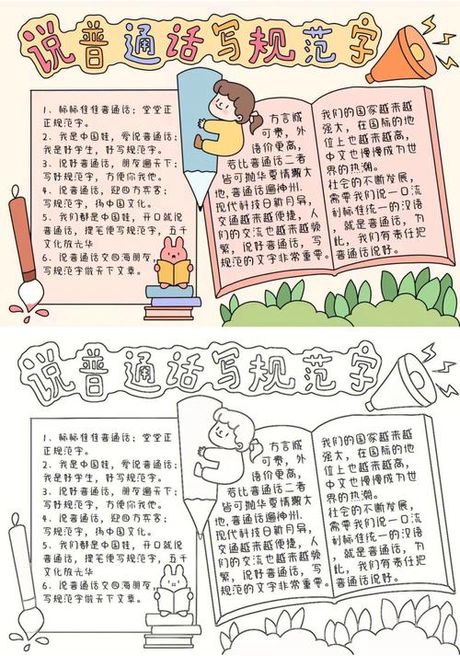 说普通话写规范字
1、标标准准普通话；堂堂正
正规范字。
2、我是中国娃，爱说普通话；
我是好学生，好写规范字。
3、说好普通话，朋友遍天下；
写规范字，方便你我他。
4、说普通话，迎四方宾客；
写规范字，扬中国文化。
5、我们都是中国娃，开口就说
普通话，提笔便写规范字，五千
文化放光华
6、说普通话交四海朋友，
写规范字做天下文章。
方言诚
可贵，外
语价更高，
若比普通话二者
皆可抛华夏情播大
地，普通话遍神州。
现代科技日新月异，
交通越来越便捷，人
们的交流也越来越频
繁，说好普通话，写
规范的文字非常重要。
我们的国家越来越
强大，在国际的地
位上也越来越高，
中文也慢慢成为世
界的热潮。
社会的不断发展，
需要我们说一口流
利标准统一的汉语
，就是普通话，为
此，我们有责任把
普通话说好。
说普通话写规范字
1、标标准准普通话；堂堂正
正规范字。
2、我是中国娃，爱说普通话；
我是好学生，好写规范字。
3、说好普通话，朋友遍天下；
写规范字，方便你我他。
4、说普通话，迎四方宾客；
写规范字，扬中国文化。
5、我们都是中国娃，开口就说
普通话，提笔便写规范字，五千
文化放光华
6、说普通话交四海朋友，
写规范字做天下文章。
方言诚
可贵，外
语价更高，
若比普通话二者
皆可抛华夏情播大
地，普通话遍神州。
现代科技日新月异，
交通越来越便捷，人
们的交流也越来越频
繁，说好普通话，写
规范的文字非常重要。
我们的国家越来越
强大，在国际的地
位上也越来越高，
中文也慢慢成为世
界的热潮。
社会的不断发展，
需要我们说一口流
利标准统一的汉语
，就是普通话，为
此，我们有责任把
普通话说好。